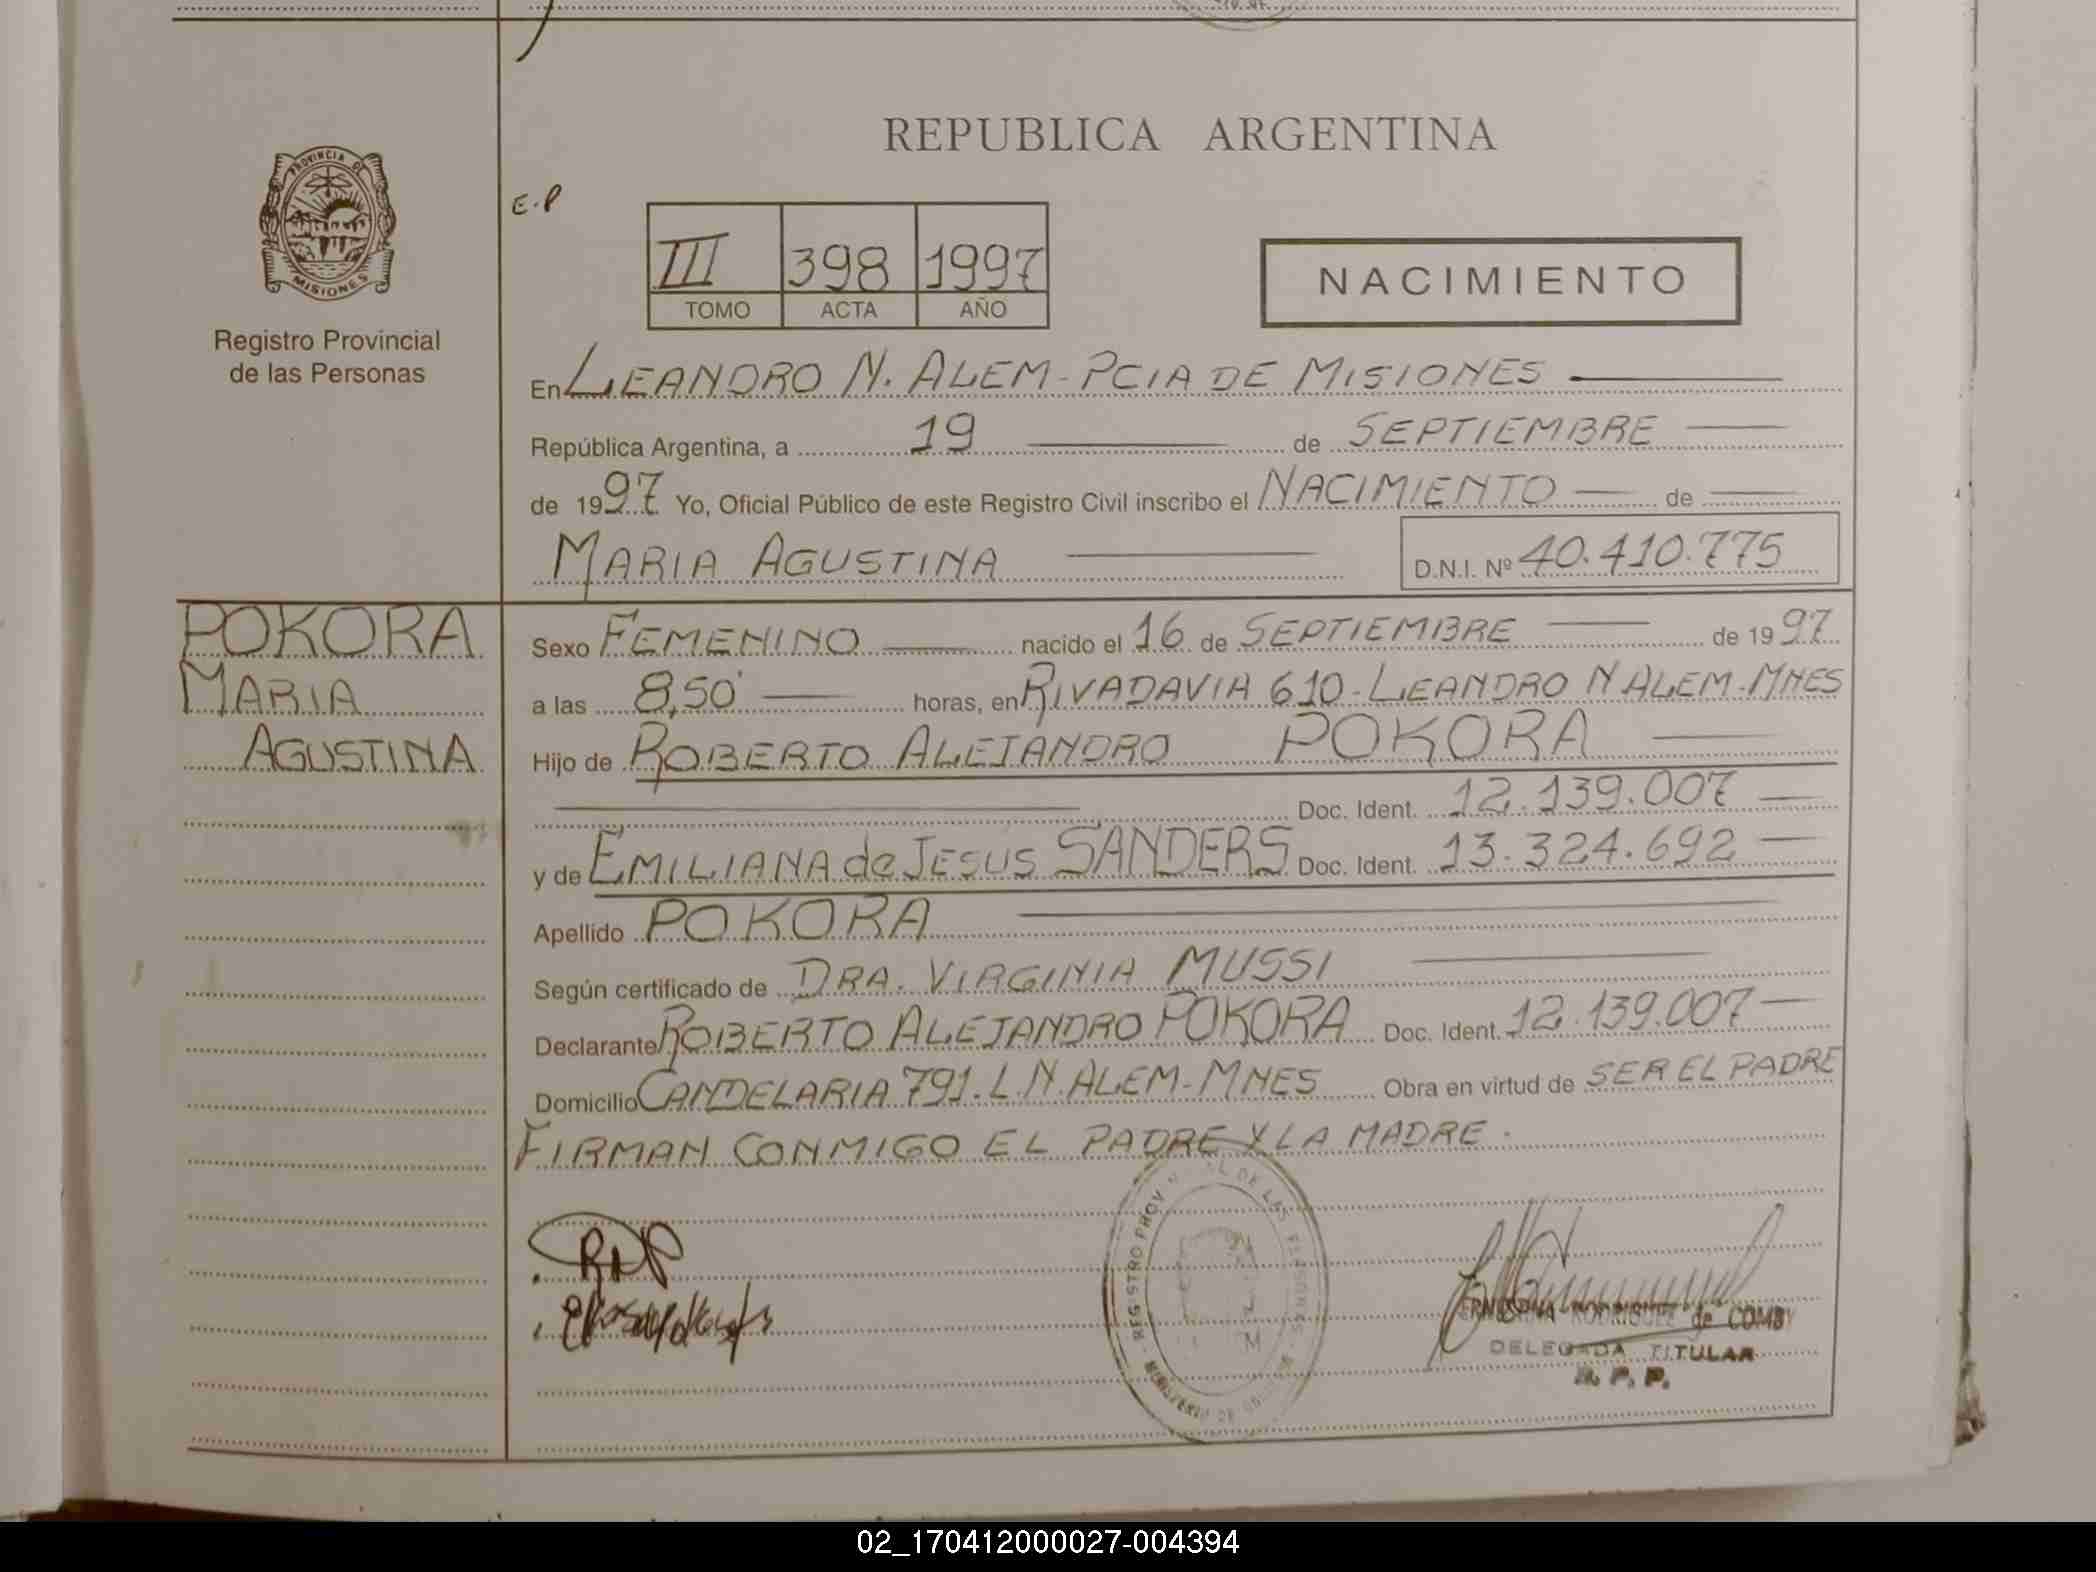 REPUBLICA ARGENTINA
PROVINCIA DE
MISIONES
Registro Provincial
de las Personas
E.P
III 398 1997
TOMO ACTA AÑO
NACIMIENTO
En LEANDRO N. ALEM - PCIA DE MISIONES
República Argentina, a 19 de SEPTIEMBRE
de 1997 Yo, Oficial Público de este Registro Civil inscribo el NACIMIENTO de
MARIA AGUSTINA D.N.I. Nº 40.410.775
POKORA
MARIA
AGUSTINA
Sexo FEMENINO nacido el 16 de SEPTIEMBRE de 1997
a las 8,50 horas, en RIVADAVIA 610 - LEANDRO N ALEM - MNES
Hijo de ROBERTO ALEJANDRO POKORA
Doc. Ident. 12.139.007
y de EMILIANA de JESUS SANDERS Doc. Ident. 13.324.692
Apellido POKORA
Según certificado de DRA. VIRGINIA MUSSI
Declarante ROBERTO ALEJANDRO POKORA Doc. Ident. 12.139.007
Domicilio CANDELARIA 791. L.N. ALEM - MNES Obra en virtud de SER EL PADRE
FIRMAN CONMIGO EL PADRE Y LA MADRE.
REGISTRO DE LAS
MINISTERIO DE
RODRIGUEZ de COMBY
DELEGADA TITULAR
R. P. P.
02_170412000027-004394